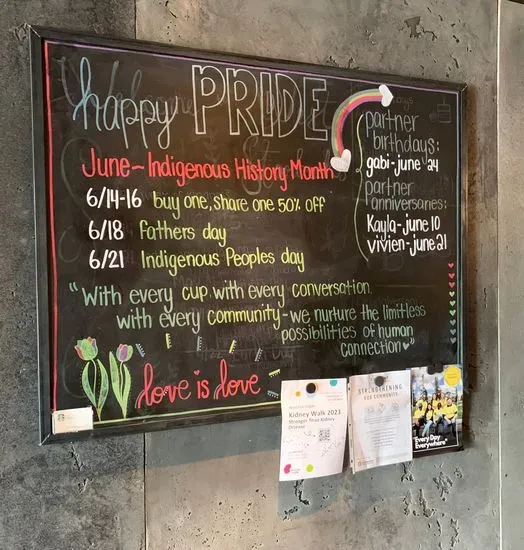 happy PRIDE
June - Indigenous History Month
6/14-16 buy one, share one 50% off
6/18 Fathers day
6/21 Indigenous Peoples day
"With every cup with every conversation
with every community - we nurture the limitless
possibilities of human
connection"
love is love
partner
birthdays:
gabi - june 24
partner
anniversaries:
Kayla - june 10
vivien - june 21
Kidney Walk 2023
Stronger Than Kidney
Disease
STRENGTHENING
OUR COMMUNITY
"Every Day
Everywhere"